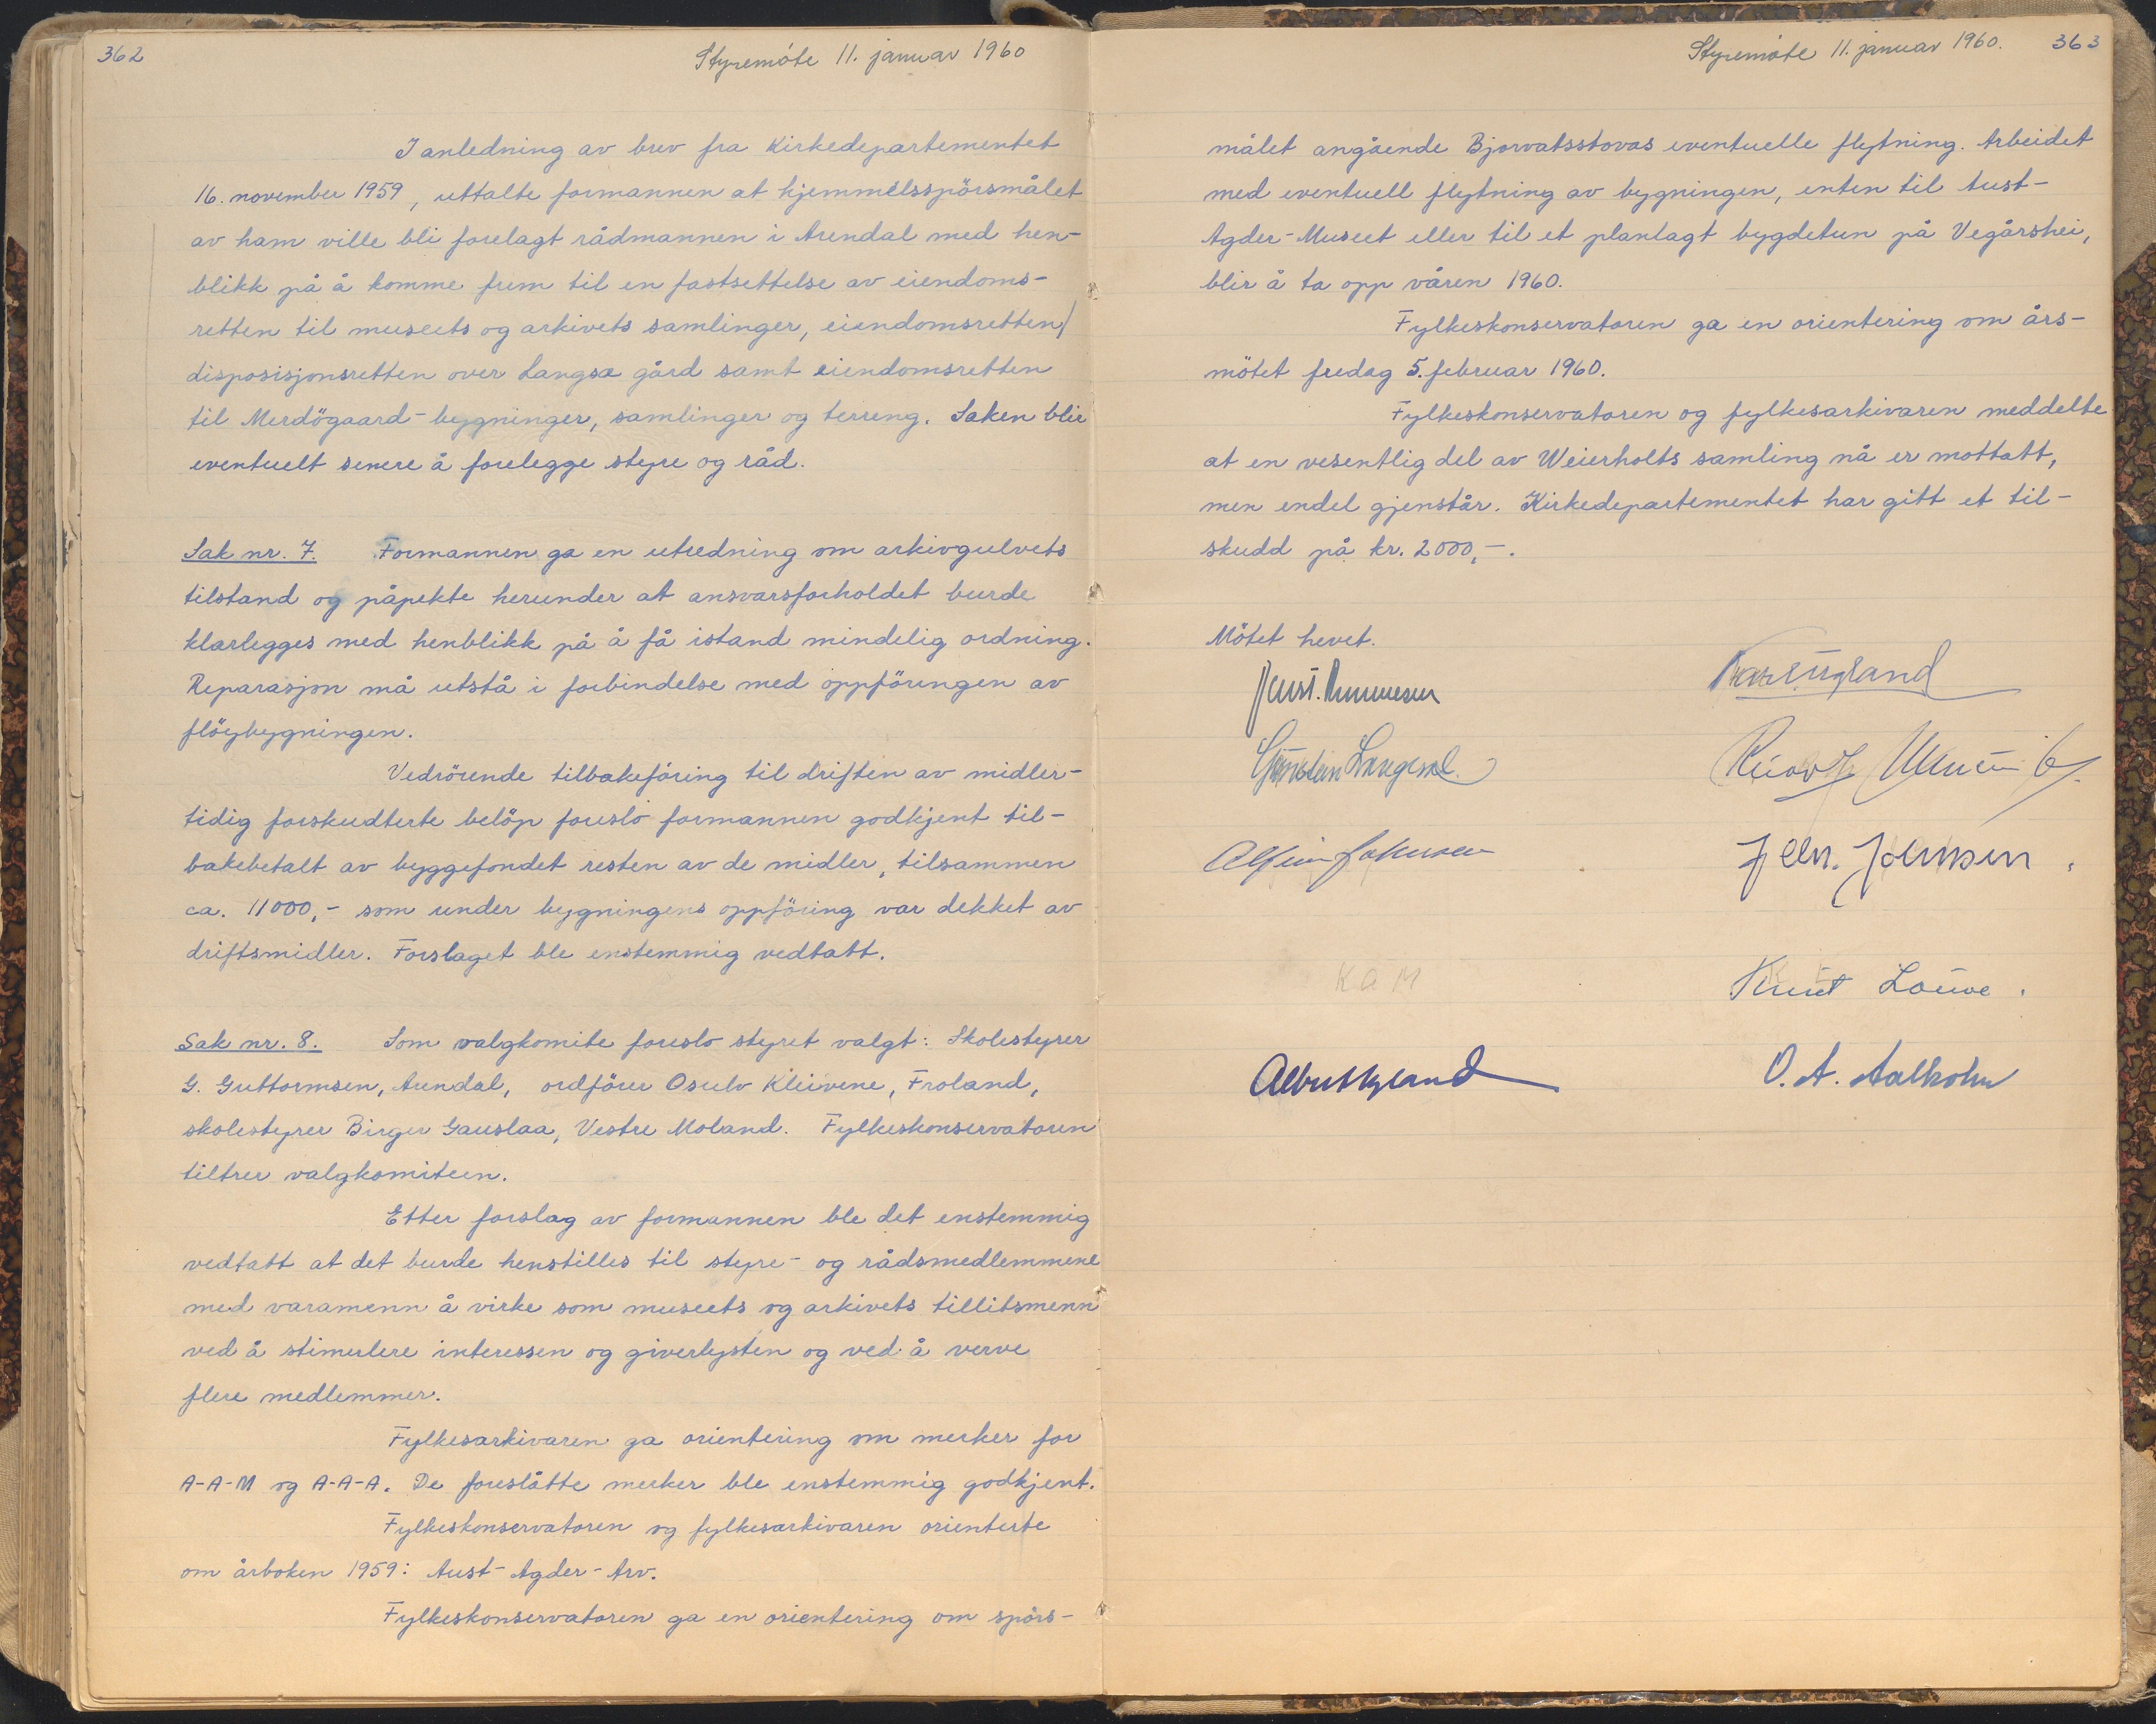 362
Styremöte 11. januar 1960
I anledning av brev fra Kirkedepartementet
16. november 1959, uttalte formannen at hjemmelsspörsmålet
av ham ville bli forelagt rådmannen i Arendal med hen-
blikk på å komme frem til en fastsettelse av eiendoms-
retten til museets og arkivets samlinger, eiendomsretten/
disposisjonsretten over Langsæ gård samt eiendomsretten
til Merdögaard-bygninger, samlinger og terreng. Saken blir
eventuelt senere å forelegge styre og råd.
Sak nr. 7. Formannen ga en utredning om arkivgulvets
tilstand og påpekte herunder at ansvarsforholdet burde
klarlegges med henblikk på å få istand mindelig ordning.
Reparasjon må utstå i forbindelse med oppföringen av
flöybygningen.
Vedrörende tilbakeföring til driften av midler-
tidig forskudterte belöp foreslo formannen godkjent til-
bakebetalt av byggefondet resten av de midler, tilsammen
ca. 11000,- som under bygningens oppföring var dekket av
driftsmidler. Forslaget ble enstemmig vedtatt.
Sak nr. 8. Som valgkomite foreslo styret valgt: Skolestyrer
G. Guttormsen, Arendal, ordförer Osulv Kleivene, Froland,
skolestyrer Birger Gauslaa, Vestre Moland. Fylkeskonservatoren
tiltrer valgkomiteen.
Etter forslag av formannen ble det enstemmig
vedtatt at det burde henstilles til styre- og rådsmedlemmene
med varamenn å virke som museets og arkivets tillitsmenn
ved å stimulere interessen og giverlysten og ved å verve
flere medlemmer.
Fylkesarkivaren ga orientering om merker for
A-A-M og A-A-A. De foreslåtte merker ble enstemmig godkjent.
Fylkeskonservatoren og fylkesarkivaren orienterte
om årboken 1959: Aust-Agder-Arv.
Fylkeskonservatoren ga en orientering om spörs-
Styremöte 11. januar 1960. 363
målet angående Bjorvatsstovas eventuelle flytning. Arbeidet
med eventuell flytning av bygningen, enten til Aust-
Agder-Museet eller til et planlagt bygdetun på Vegårshei,
blir å ta opp våren 1960.
Fylkeskonservatoren ga en orientering om års-
mötet fredag 5. februar 1960.
Fylkeskonservatoren og fylkesarkivaren meddelte
at en vesentlig del av Weierholts samling nå er mottatt,
men endel gjenstår. Kirkedepartementet har gitt et til-
skudd på kr. 2000,-.
Mötet hevet.
Johnsen.
KAM
Knut Louve.
O. A. Aalholm